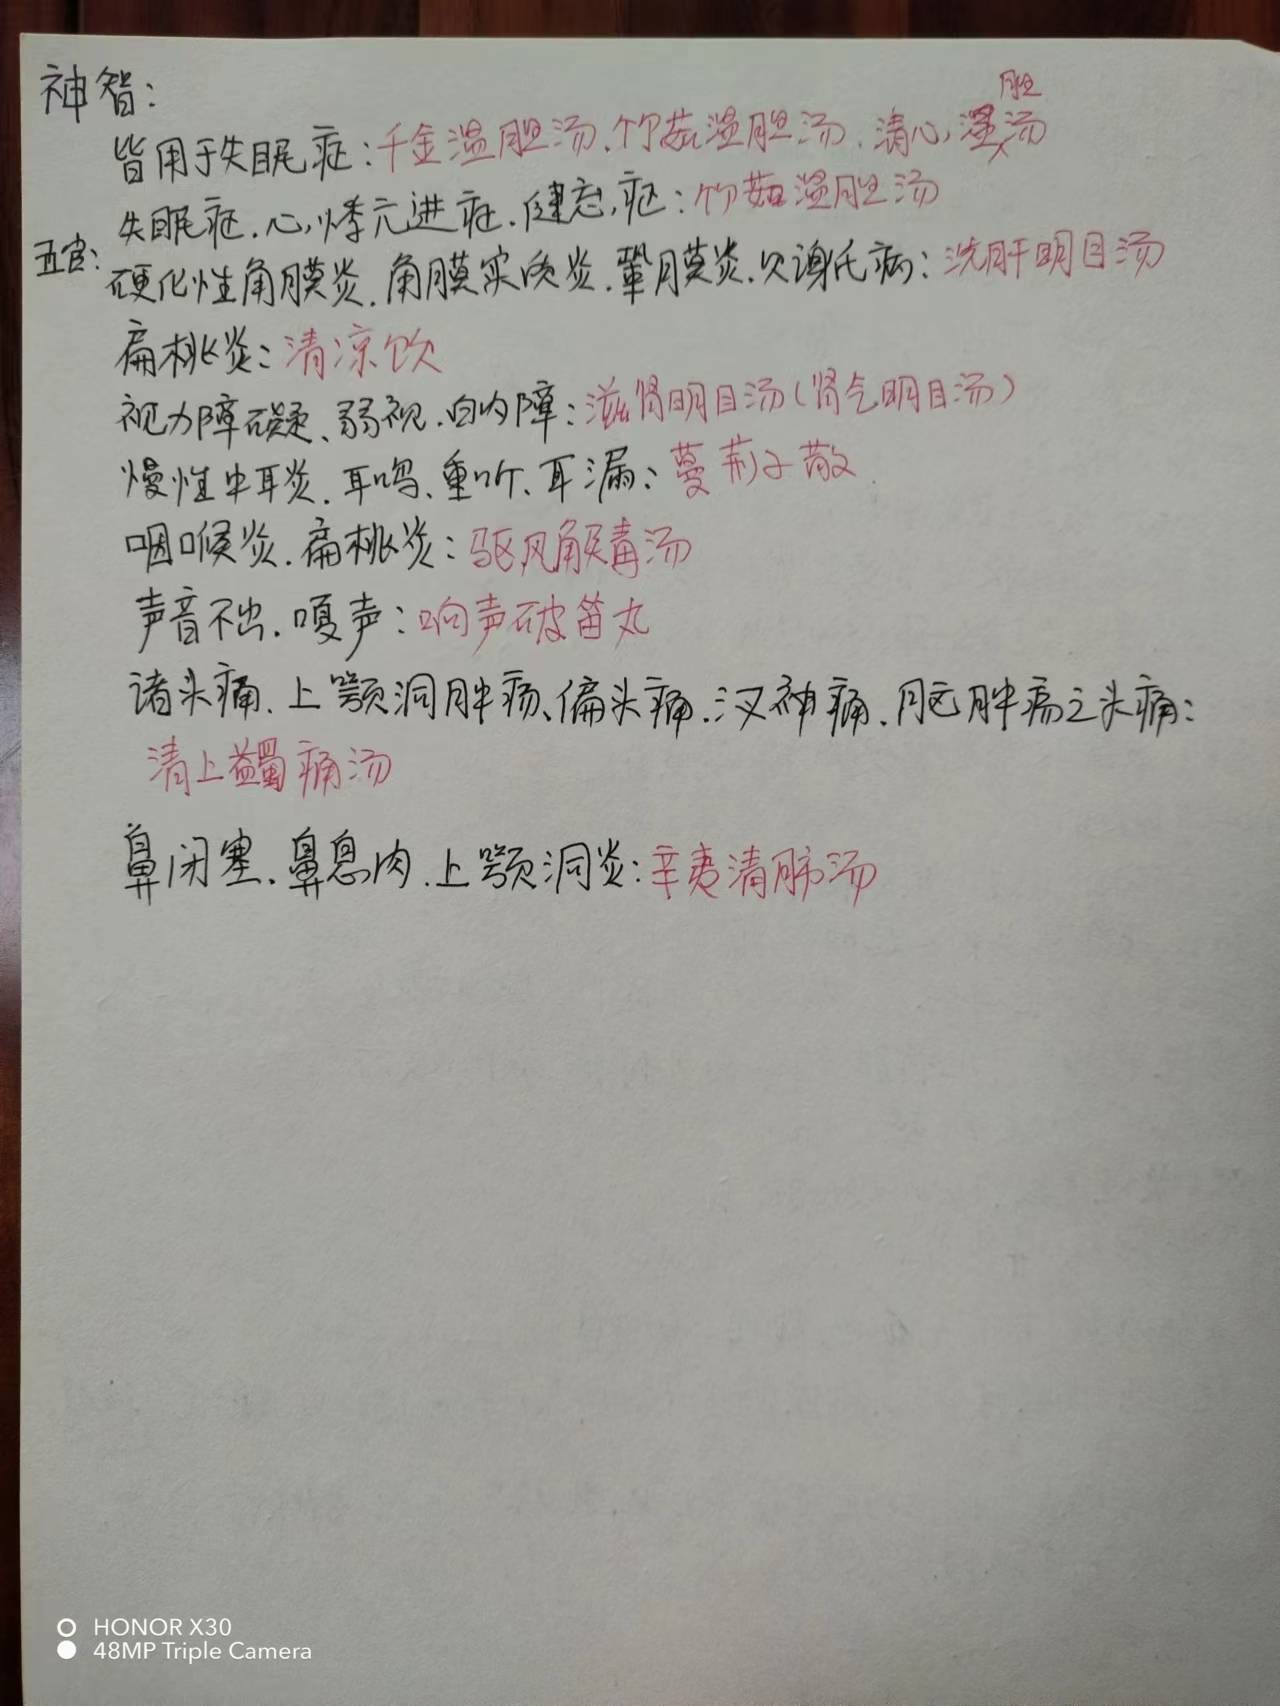 神智：
皆用于失眠症：千金温胆汤、竹茹温胆汤、清心温胆汤
失眠症、心悸亢进症、健忘症：竹茹温胆汤
五官：硬化性角膜炎、角膜实质炎、鞏膜炎、贝谢氏病：洗肝明目汤
扁桃炎：清凉饮
视力障碍、弱视、白内障：滋肾明目汤（肾气明目汤）
慢性中耳炎、耳鸣、重听、耳漏：蔓荆子散
咽喉炎、扁桃炎：驱风解毒汤
声音不出、嗄声：响声破笛丸
诸头痛、上颚洞肿疡、偏头痛、神痛、脑肿疡之头痛：
清上蠲痛汤
鼻闭塞、鼻息肉、上颚洞炎：辛夷清肺汤
HONOR X30
48MP Triple Camera